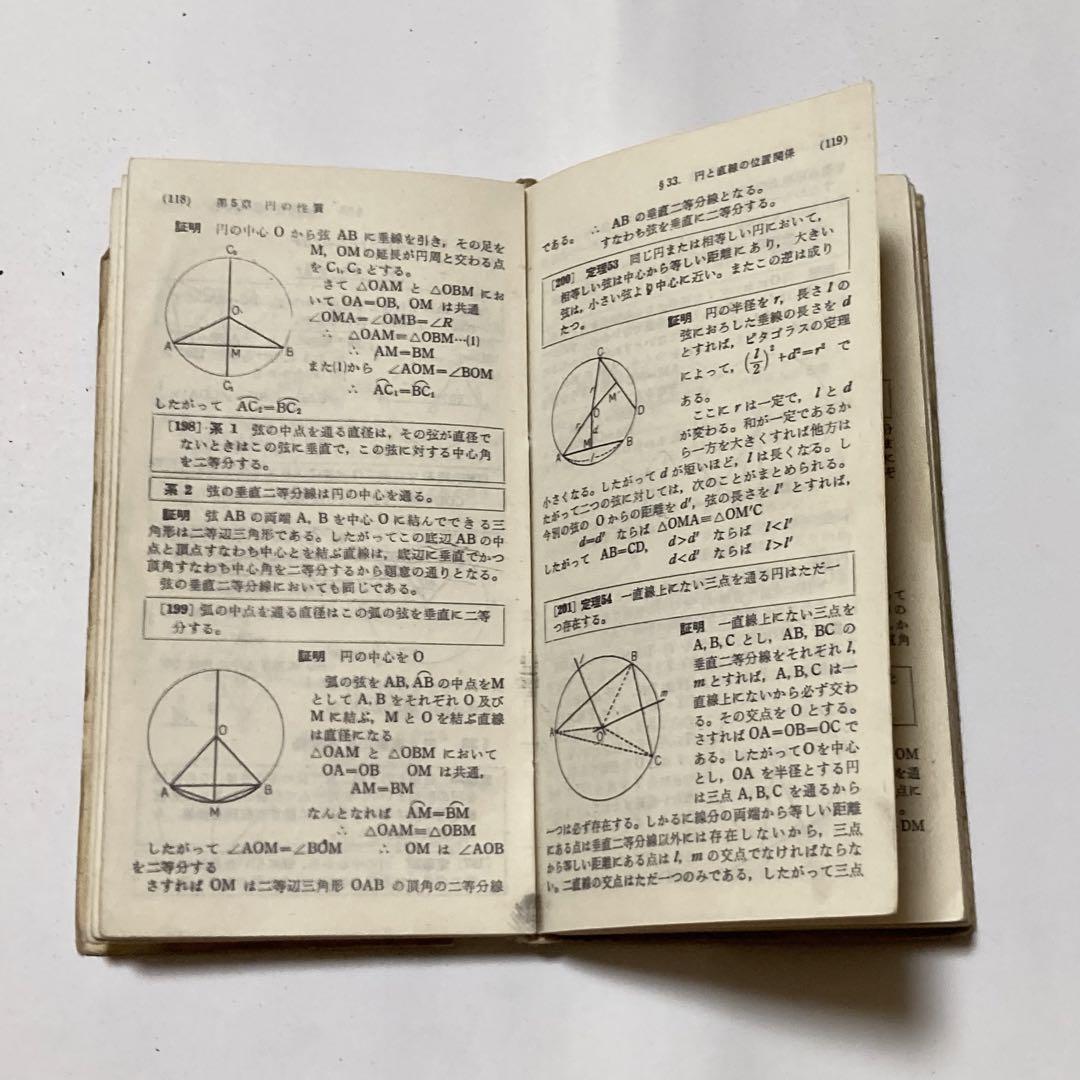 (118) 第5章 円の性質
証明 円の中心 O から弦 AB に垂線を引き，その足を
M，OM の延長が円周と交わる点
を C₁, C₂ とする。
さて △OAM と △OBM にお
いて OA=OB, OM は共通
∠OMA=∠OMB=∠R
∴ △OAM≡△OBM…(1)
∴ AM=BM
また(1)から ∠AOM=∠BOM
∴ A͡C₁=B͡C₁
したがって A͡C₂=B͡C₂
C₂
O
A
M
B
C₁
[198] 系 1 弦の中点を通る直径は，その弦が直径で
ないときはこの弦に垂直で，この弦に対する中心角
を二等分する。
系 2 弦の垂直二等分線は円の中心を通る。
証明 弦 AB の両端 A, B を中心 O に結んでできる三
角形は二等辺三角形である。したがってこの底辺 AB の中
点と頂点すなわち中心とを結ぶ直線は，底辺に垂直でかつ
頂角すなわち中心角を二等分するから題意の通りとなる。
弦の垂直二等分線においても同じである。
[199] 弧の中点を通る直径はこの弧の弦を垂直に二等
分する。
証明 円の中心を O
弧の弦を AB, A͡B の中点をM
として A, B をそれぞれ O 及び
M に結ぶ，M と O を結ぶ直線
は直径になる
△OAM と △OBM において
OA=OB OM は共通，
AM=BM
なんとなれば A͡M=B͡M
∴ △OAM≡△OBM
O
A
B
M
したがって ∠AOM=∠BOM ∴ OM は ∠AOB
を二等分する
さすれば OM は二等辺三角形 OAB の頂角の二等分線
§33. 円と直線の位置関係 (119)
である。 ∴ AB の垂直二等分線となる。
すなわち弦を垂直に二等分する。
[200] 定理53 同じ円または相等しい円において，
相等しい弦は中心から等しい距離にあり，大きい
弦は，小さい弦より中心に近い。またこの逆は成り
たつ。
証明 円の半径を r，長さ l の
弦におろした垂線の長さを d
とすれば，ピタゴラスの定理
によって，(l/2)²+d²=r² で
ある。
ここに r は一定で，l と d
が変わる。和が一定であるか
ら一方を大きくすれば他方は
C
r
M'
O
D
d
A
M
B
l
小さくなる。したがって d が短いほど，l は長くなる。し
たがって二つの弦に対しては，次のことがまとめられる。
今別の弦の O からの距離を d'，弦の長さを l' とすれば，
d=d' ならば △OMA≡△OM'C
したがって AB=CD, d>d' ならば l<l'
d<d' ならば l>l'
[201] 定理54 一直線上にない三点を通る円はただ一
つ存在する。
証明 一直線上にない三点を
A, B, C とし，AB, BC の
垂直二等分線をそれぞれ l,
m とすれば，A, B, C は一
直線上にないから必ず交わ
る。その交点を O とする。
さすれば OA=OB=OC で
ある。したがって O を中心
とし，OA を半径とする円
は三点 A, B, C を通るから
B
m
A
O
C
一つは必ず存在する。しかるに線分の両端から等しい距離
にある点は垂直二等分線以外には存在しないから，三点
から等しい距離にある点は l, m の交点でなければならな
い。二直線の交点はただ一つのみである，したがって三点
OM
を通
点に
DM